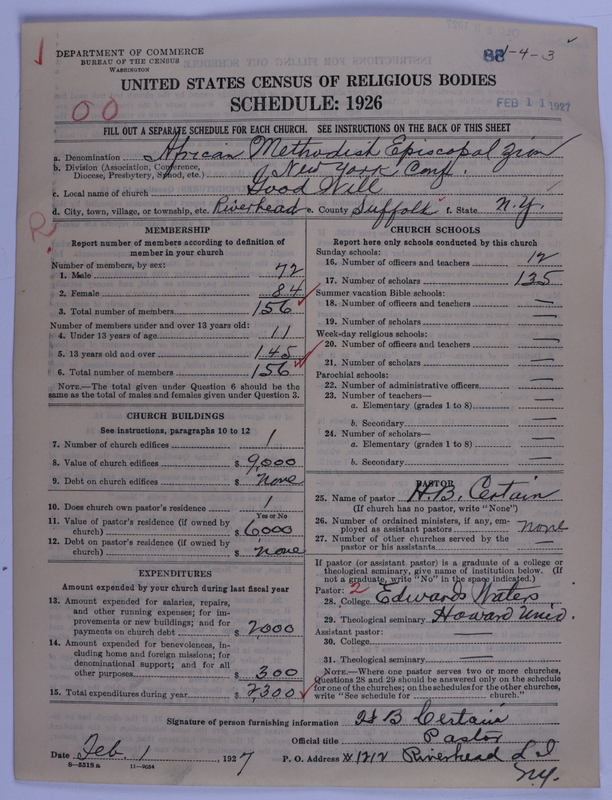 DEPARTMENT OF COMMERCE
BUREAU OF THE CENSUS
WASHINGTON
88 1-4-3
UNITED STATES CENSUS OF RELIGIOUS BODIES
SCHEDULE: 1926
FEB 11 1927
00
FILL OUT A SEPARATE SCHEDULE FOR EACH CHURCH. SEE INSTRUCTIONS ON THE BACK OF THIS SHEET
a. Denomination African Methodish Episcopal Zion
b. Division (Association, Conference, Diocese, Presbytery, Synod, etc.) New York Conf.
c. Local name of church Good Will
d. City, town, village, or township, etc. Riverhead e. County Suffolk f. State N.Y.
R
MEMBERSHIP
Report number of members according to definition of
member in your church
Number of members, by sex:
1. Male 72
2. Female 84
3. Total number of members 156
Number of members under and over 13 years old:
4. Under 13 years of age 11
5. 13 years old and over 145
6. Total number of members 156
NOTE.—The total given under Question 6 should be the
same as the total of males and females given under Question 3.
CHURCH BUILDINGS
See instructions, paragraphs 10 to 12
7. Number of church edifices 1
8. Value of church edifices $ 9,000
9. Debt on church edifices $ none
10. Does church own pastor's residence? 1
Yes or No
11. Value of pastor's residence (if owned by
church) $ 6000
12. Debt on pastor's residence (if owned by
church) $ none
EXPENDITURES
Amount expended by your church during last fiscal year
13. Amount expended for salaries, repairs,
and other running expenses; for im-
provements or new buildings; and for
payments on church debt $ 2000
14. Amount expended for benevolences, in-
cluding home and foreign missions; for
denominational support; and for all
other purposes $ 300
15. Total expenditures during year $ 2300
CHURCH SCHOOLS
Report here only schools conducted by this church
Sunday schools:
16. Number of officers and teachers 12
17. Number of scholars 135
Summer vacation Bible schools:
18. Number of officers and teachers —
19. Number of scholars —
Week-day religious schools:
20. Number of officers and teachers —
21. Number of scholars —
Parochial schools:
22. Number of administrative officers —
23. Number of teachers—
a. Elementary (grades 1 to 8) —
b. Secondary —
24. Number of scholars—
a. Elementary (grades 1 to 8) —
b. Secondary —
PASTOR
25. Name of pastor H.B. Certain
(If church has no pastor, write "None")
26. Number of ordained ministers, if any, em-
ployed as assistant pastors none
27. Number of other churches served by the
pastor or his assistants —
If pastor (or assistant pastor) is a graduate of a college or
theological seminary, give name of institution below. (If
not a graduate, write "No" in the space indicated.)
Pastor: 2
28. College Edward Waters
29. Theological seminary Howard Univ.
Assistant pastor:
30. College —
31. Theological seminary —
NOTE.—Where one pastor serves two or more churches,
Questions 28 and 29 should be answered only on the schedule
for one of the churches; on the schedules for the other churches,
write "See schedule for church."
Signature of person furnishing information H B Certain
Official title Pastor
Date Feb. 1 1927 P. O. Address # 1212 Riverhead L I
N.Y.
8—5518 a 11—9054